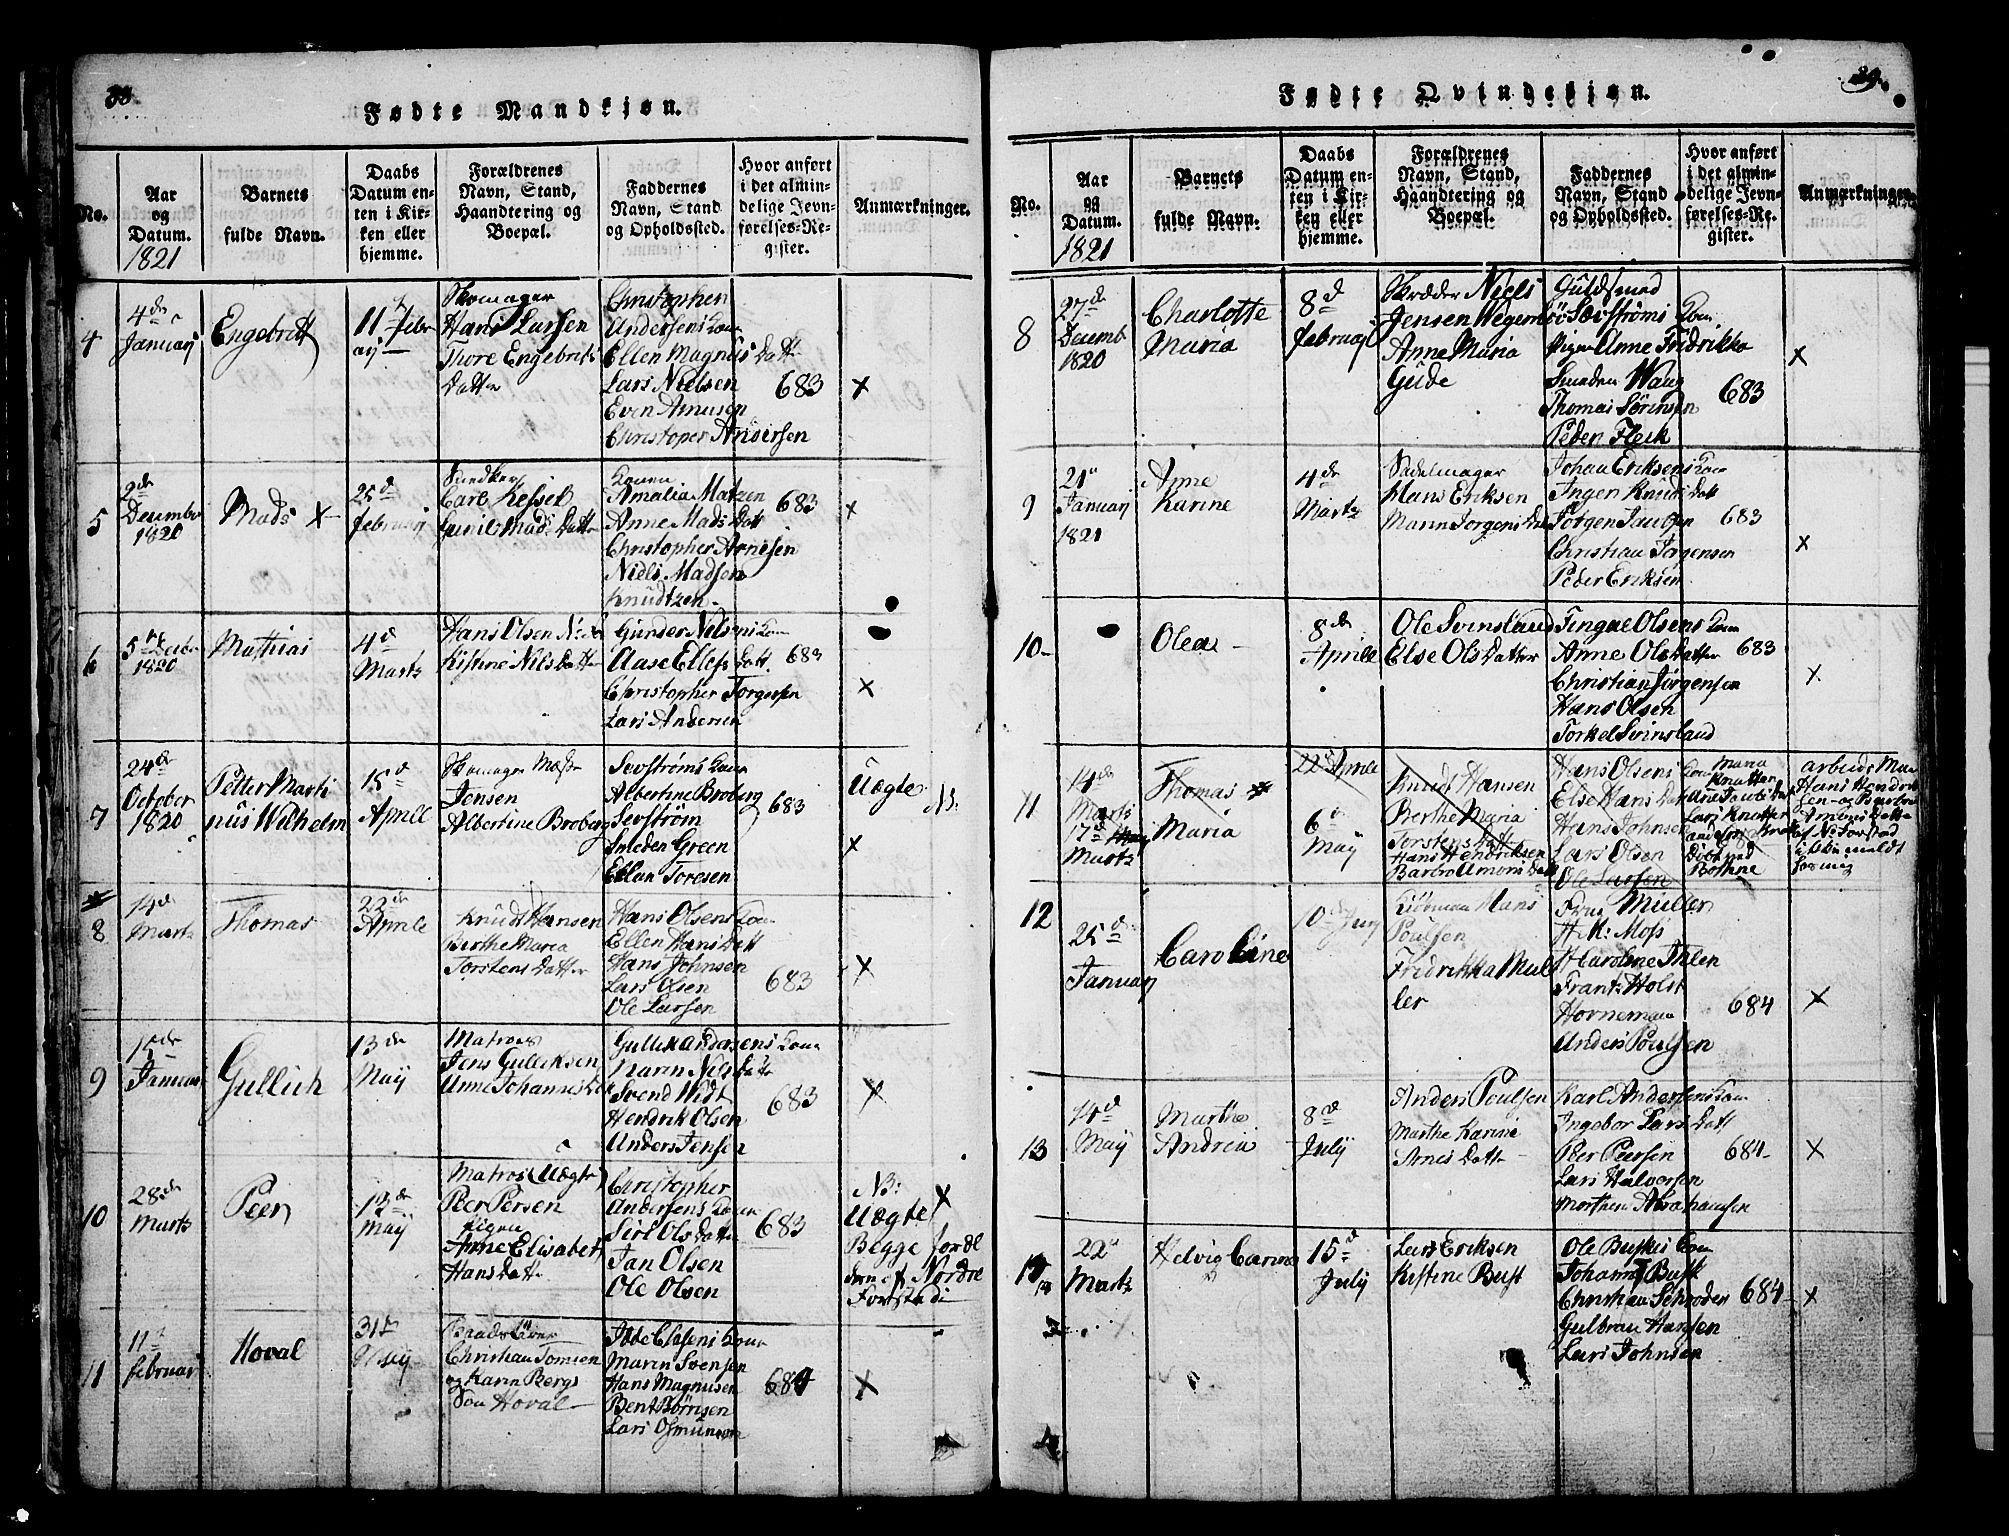 38.
Fødte Mandkjøn.
No.
Aar
og
Datum.
1821
Barnets
fulde Navn.
Daabs
Datum en-
ten i Kir-
ken eller
hjemme.
Forældrenes
Navn, Stand,
Haandtering og
Boepæl.
Faddernes
Navn, Stand
og Opholdssted.
Hvor anført
i det almin-
delige Jevn-
førelses-Re-
gister.
Anmærkninger.
4
4de
Januarj
Engebrett
11te Febr
arj
Skomager
Hans Larssen
Thore Engebrits
Datter
Christophen
Andersens Kone
Ellen Magnus Datt
Lars Nielsen
Even Asmusen
Christoper Andersen
683
×
5
2de
Decembr
1820
Mads ×
25de
februarj
Carl Kessel
Mads Datter
Konen
Amalia Matzen
Anne Mads Datt
Christopher Arnesen
Niels Madsen
Knudtzen
683
×
6
5te Decbr
1820
Mathias
4de
Martz
Hans Olsen
Kistine Nils Datter
Gunder Nelsens Kone
Aase Ellefs Datt.
Christopher Torgersen
Lars Andersen
683
×
7
24de
October
1820
Petter Marti
nüs Wilhelm
15de
Aprill
Skomager
Jensen
Albertine Broberg
Sevströms Kone
Albertine Broberg
Sevström
Smeden Green
Ellan Toresen
683
Uægte
NB:
×
8
14de
Martz
Thomas
22de
Aprile
Knud Hansen
Birthe Maria
Torstens Datter
Hans Olsens Kone
Ellen Hans Datt
Hans Johnsen
Lars Olsen
Ole Larsen
683
×
9
15de
Januar
Gullich
13de
Maÿ
Matros
Jens Gulliksen
Anne Johannes D
Gullik Andersens Kone
Maren Nils Datte
Svend Widt
Hendrik Olsen
Anders Jensen
683
×
10
28de
Martz
Peer
12de
Maÿ
Matros (Uægte)
Peer Persen
Pigen
Anne Elisabeth
Hans Datte
Christopher
Andersens Kone
Siri Ols Datter
Jan Olsen
Ole Olsen
683
NB: ×
Uægte
Begge foræl
dern af Nordre
Forstadi
11
11te
februar
Hoval
31te
Maÿ
Christian Tomsen
og Karin Bergs
Søn Hoval
Ebbe Ellefsens Kone
Maren Svensen
Hans Magnusen
Bent Börresen
Lars Osmunsen
684
×
39.
Fødte Qvindekjøn.
No.
Aar
og
Datum.
1821
Barnets
fulde Navn.
Daabs
Datum en-
ten i Kir-
ken eller
hjemme.
Forældrenes
Navn, Stand,
Haandtering og
Boepæl.
Faddernes
Navn, Stand
og Opholdssted.
Hvor anført
i det almin-
delige Jevn-
førelses-Re-
gister.
Anmærkninger.
8
27de
Decemb
1820
Charlotte
Maria
8de
februarj
Skræder Niels
Jensen Wegem
Anne Maria
Gude
Guldsmed
Sævströms Kone
Pigen Anne Fridrikke
Smeden Waug
Thomas Sörensen
Peder Fleck
683
×
9
21de
Januarj
1821
Anne
Karine
4de
Martz
Sadelmager
Hans Eriksen
Maren Jorgens Datt
Johan Eriksens Kone
Ingen Knuds Datt
Jörgen Paulsen
Christian Jörgensen
Peder Eriksen
683
×
10
Olea
8de
Aprill
Ole Svinsland
Else Ols Datter
Tingae Olsens Kone
Anne Ols Datter
Christian Jörgensen
Hans Olsen
Torkel Svinsland
683
×
11
14de
Marts
17de
Martz
Thomas
Maria
22de Aprile
6de
Maÿ
Knud Hansen
Berthe Maria
Torstens Datt
Hans Hendriksen
Barbro Amons Datt
Hans Olsens Kone
Else Hans Datt
Hans Johnsen
Lars Olsen
Ole Larsen
Maria
Knutten
Lars Knutten
Bothne
arbeids Man
Hans Hendrik
sen og Barbro
Amons Datter
af N: Forstad
ikke meldt
for mig
12
25de
Januarj
Caroline
10de Junj
Kiöbman Hans
Poulsen
Fridrikka Mul
ler
Frue Muller
H. K: Moss
H Caroline Ihlen
Frantz Holst
Horneman
Anders Poulsen
684
×
13
14de
Maÿ
Marthe
Andrea
8de
Julÿ
Anders Poulsen
Marthe Karine
Arnes Datter
Karl Andersens Kone
Ingebor Lars Datt
Peer Peersen
Lars Halversen
Morthen Abrahamsen
684
×
14
22de
Martz
Helvig Carine
15de
Julÿ
Lars Eriksen
Kistine Busk
Ole Buskes Kone
Johanne Busk
Christian Schroder
Gulbran Hansen
Lars Johnsen
684
×